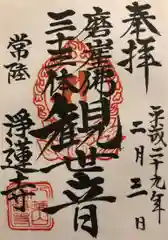 奉拝
平成二十九年
二月三日
磨崖佛
三十三体
観世音
常陸
浄蓮寺